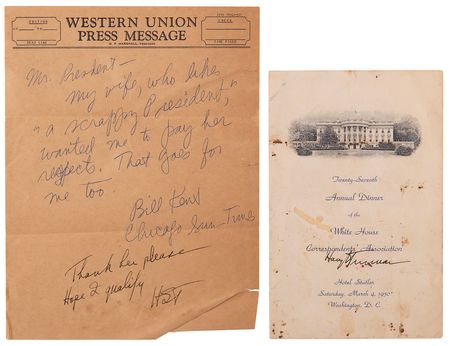 WESTERN UNION
PRESS MESSAGE
Mr. President—
My wife, who likes
"a scrappy President,"
wanted me to pay her
respects. That goes for
me too.
Bill Kent
Chicago Sun-Times
Thank her please
Hope I qualify
HST
Twenty-Seventh
Annual Dinner
of the
White House
Correspondents' Association
Harry Truman
Hotel Statler
Saturday, March 4, 1950
Washington, D. C.